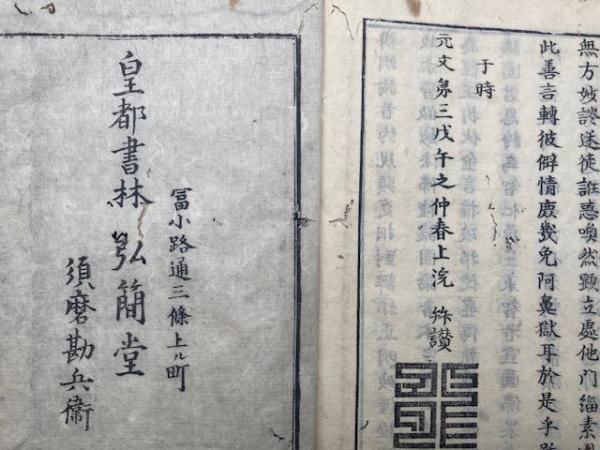 無方妙談迷徒誑惑喚然顕立處他門緇素
此善言轉彼僻情庶幾免阿鼻獄耳於是乎
于時
元文第三戊午之仲春上浣
皇都書林弘簡堂
冨小路通三條上ル町
須磨勘兵衛